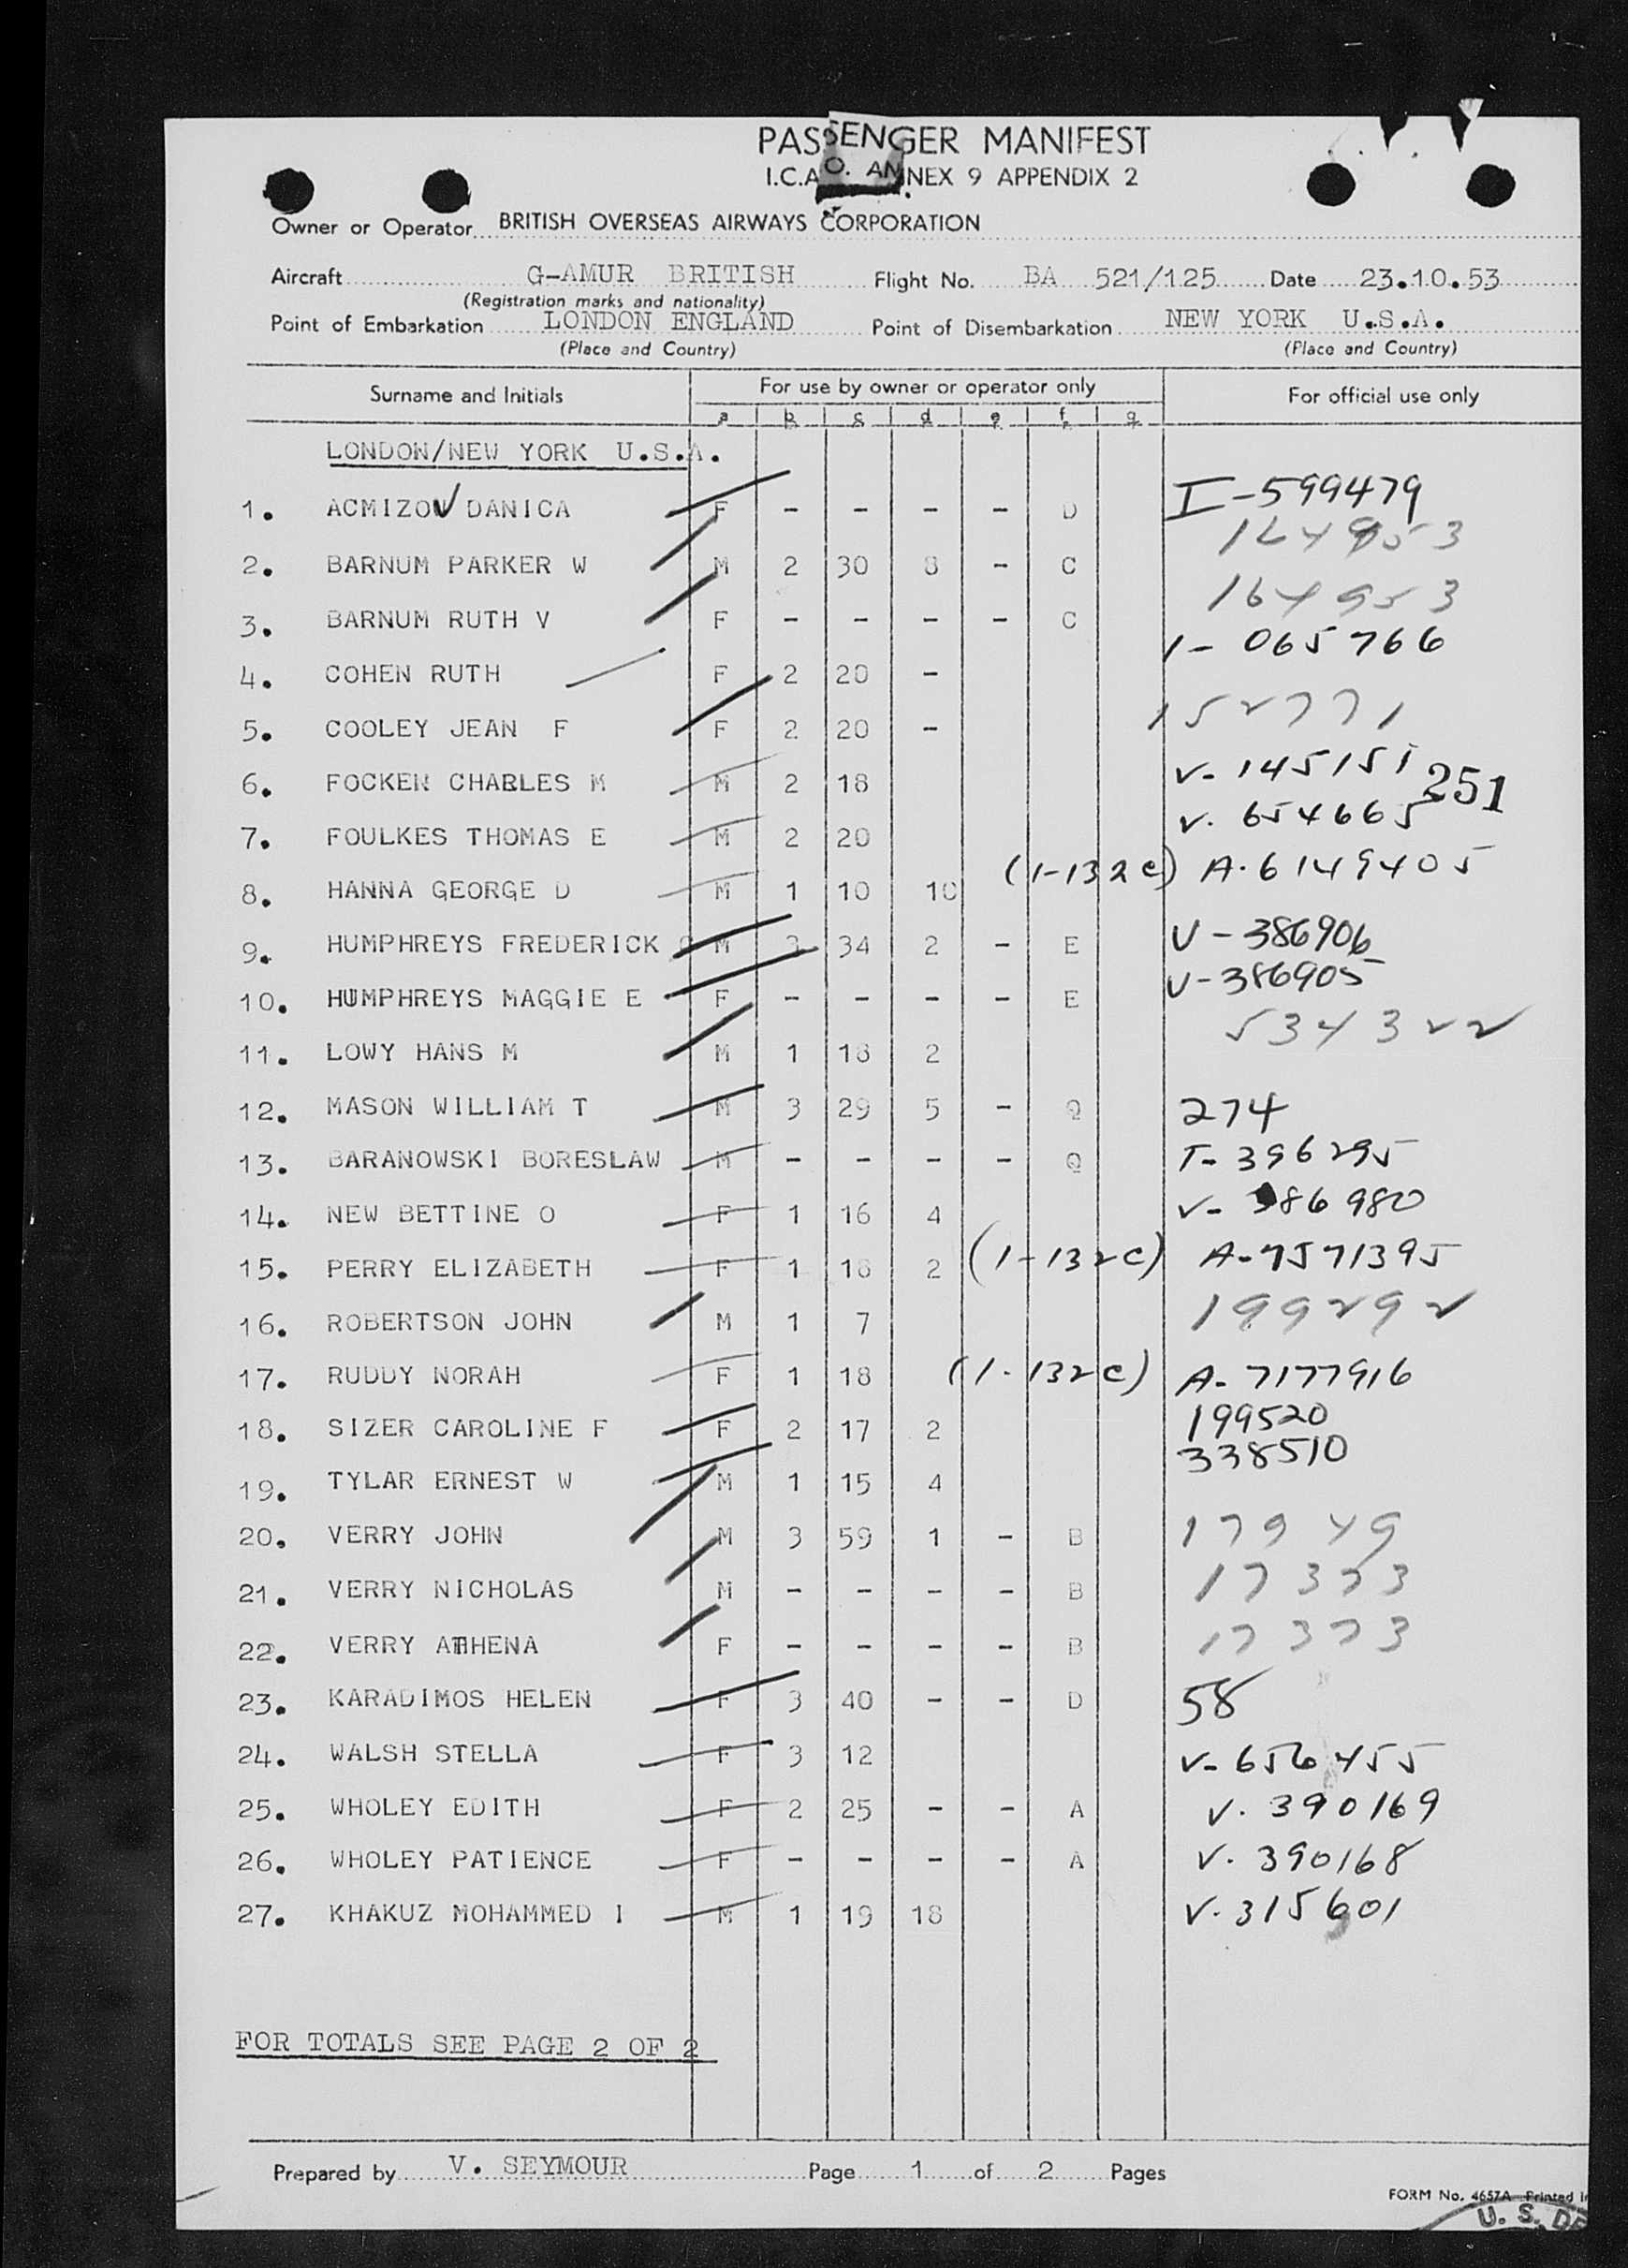 PASSENGER MANIFEST
I.C.A.O. ANNEX 9 APPENDIX 2
Owner or Operator BRITISH OVERSEAS AIRWAYS CORPORATION
Aircraft G-AMUR BRITISH Flight No. BA 521/125 Date 23.10.53
(Registration marks and nationality)
Point of Embarkation LONDON ENGLAND Point of Disembarkation NEW YORK U.S.A.
(Place and Country) (Place and Country)
Surname and Initials For use by owner or operator only For official use only
a b c d e f g
LONDON/NEW YORK U.S.A.
1. ACMIZOV DANICA F - - - - D I-599479
2. BARNUM PARKER W M 2 30 8 - C 164953
3. BARNUM RUTH V F - - - - C 164953
4. COHEN RUTH F 2 20 - 1-065766
5. COOLEY JEAN F F 2 20 - 152771
6. FOCKEN CHARLES M M 2 18 V-145151
251
7. FOULKES THOMAS E M 2 20 V. 654665
8. HANNA GEORGE D M 1 10 10 (1-132c) A.6149405
9. HUMPHREYS FREDERICK M 3 34 2 - E V-386906
10. HUMPHREYS MAGGIE E F - - - - E V-386905
11. LOWY HANS M M 1 18 2 534322
12. MASON WILLIAM T M 3 29 5 - Q 274
13. BARANOWSKI BORESLAW M - - - - Q T-396295
14. NEW BETTINE O F 1 16 4 V-386980
15. PERRY ELIZABETH F 1 18 2 (1-132c) A-7571395
16. ROBERTSON JOHN M 1 7 199292
17. RUDDY NORAH F 1 18 (1-132c) A-7177916
18. SIZER CAROLINE F F 2 17 2 199520
19. TYLAR ERNEST W M 1 15 4 338510
20. VERRY JOHN M 3 59 1 - B 17949
21. VERRY NICHOLAS M - - - - B 17373
22. VERRY ATHENA F - - - - B 17373
23. KARADIMOS HELEN F 3 40 - - D 58
24. WALSH STELLA F 3 12 V-656455
25. WHOLEY EDITH F 2 25 - - A V.390169
26. WHOLEY PATIENCE F - - - - A V.390168
27. KHAKUZ MOHAMMED I M 1 19 18 V.315601
FOR TOTALS SEE PAGE 2 OF 2
Prepared by V. SEYMOUR Page 1 of 2 Pages
FORM No. 4657A Printed
U. S. DE